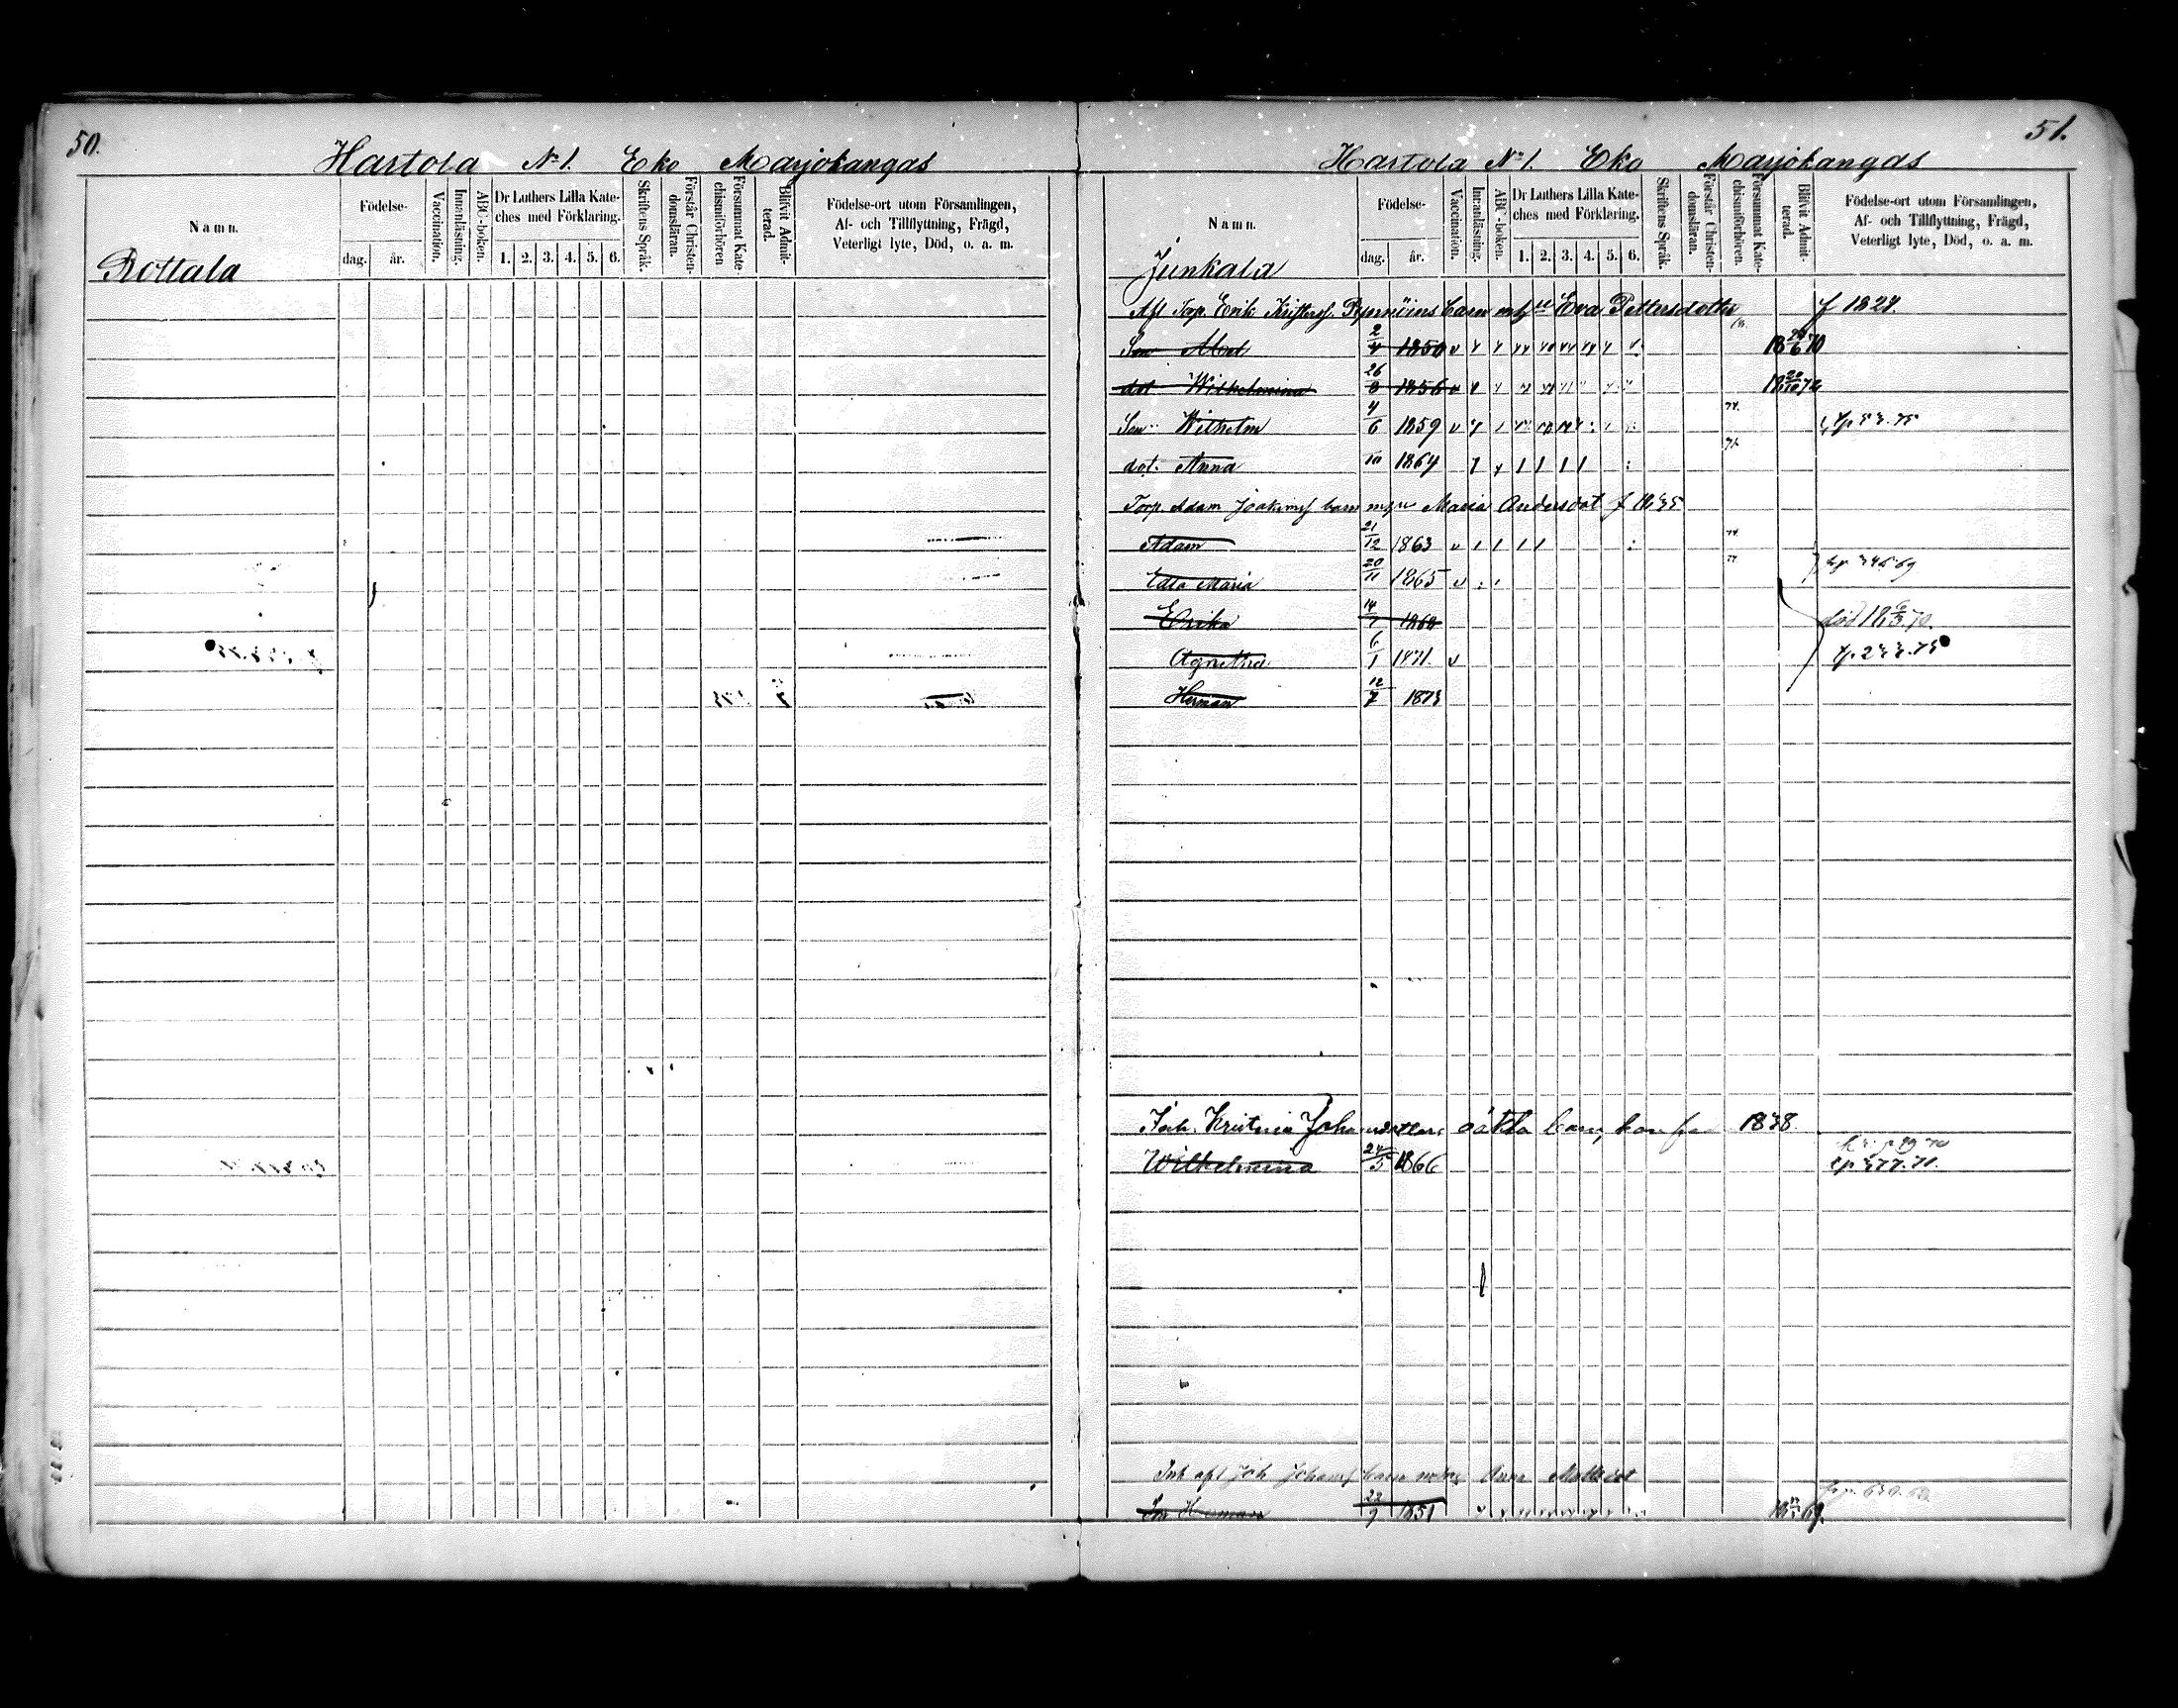 50.
Hartola No 1. Eko Marjokangas
Namn.
Födelse-
dag. år.
Vaccination.
Innanläsning.
ABC-boken.
Dr Luthers Lilla Kate-
ches med Förklaring.
1. 2. 3. 4. 5. 6.
Skriftens Språk.
Förstår Christen-
domsläran.
Försummat Kate
chismiförhören
Blifvit Admit-
terad.
Födelse-ort utom Församlingen,
Af- och Tillflyttning, Frägd,
Veterligt lyte, Död, o. a. m.
Rottala
51.
Hartola No 1. Eko Marjokangas
Namn.
Födelse-
dag. år.
Vaccination.
Innanläsning.
ABC-boken.
Dr Luthers Lilla Kate-
ches med Förklaring.
1. 2. 3. 4. 5. 6.
Skriftens Språk.
Förstår Christen-
domsläran.
Försummat Kate-
chismiförhören.
Blifvit Admit-
terad.
Födelse-ort utom Församlingen,
Af- och Tillflyttning, Frägd,
Veterligt lyte, Död, o. a. m.
Junkala
Afl Torp. Erik barn Eva Pettersdotter f 1824.
Son 2/4 1850
dot Wilhelmina 26/8 1856
Son Wilhelm 4/6 1859
dot. Anna 10 1864
Torp. Adam Joakimsf barn Maria Andersdot f 1835
Adam 21/12 1863
Edla Maria 20/11 1865
Erika 14/7 1868 död
Agnetha 6/1 1871.
Herman 12/7 1873
oäkta barn, 1838.
Wilhelmina 24/5 1866
Inh afl Joh Johansf barn Anna
Herman 22/9 1851